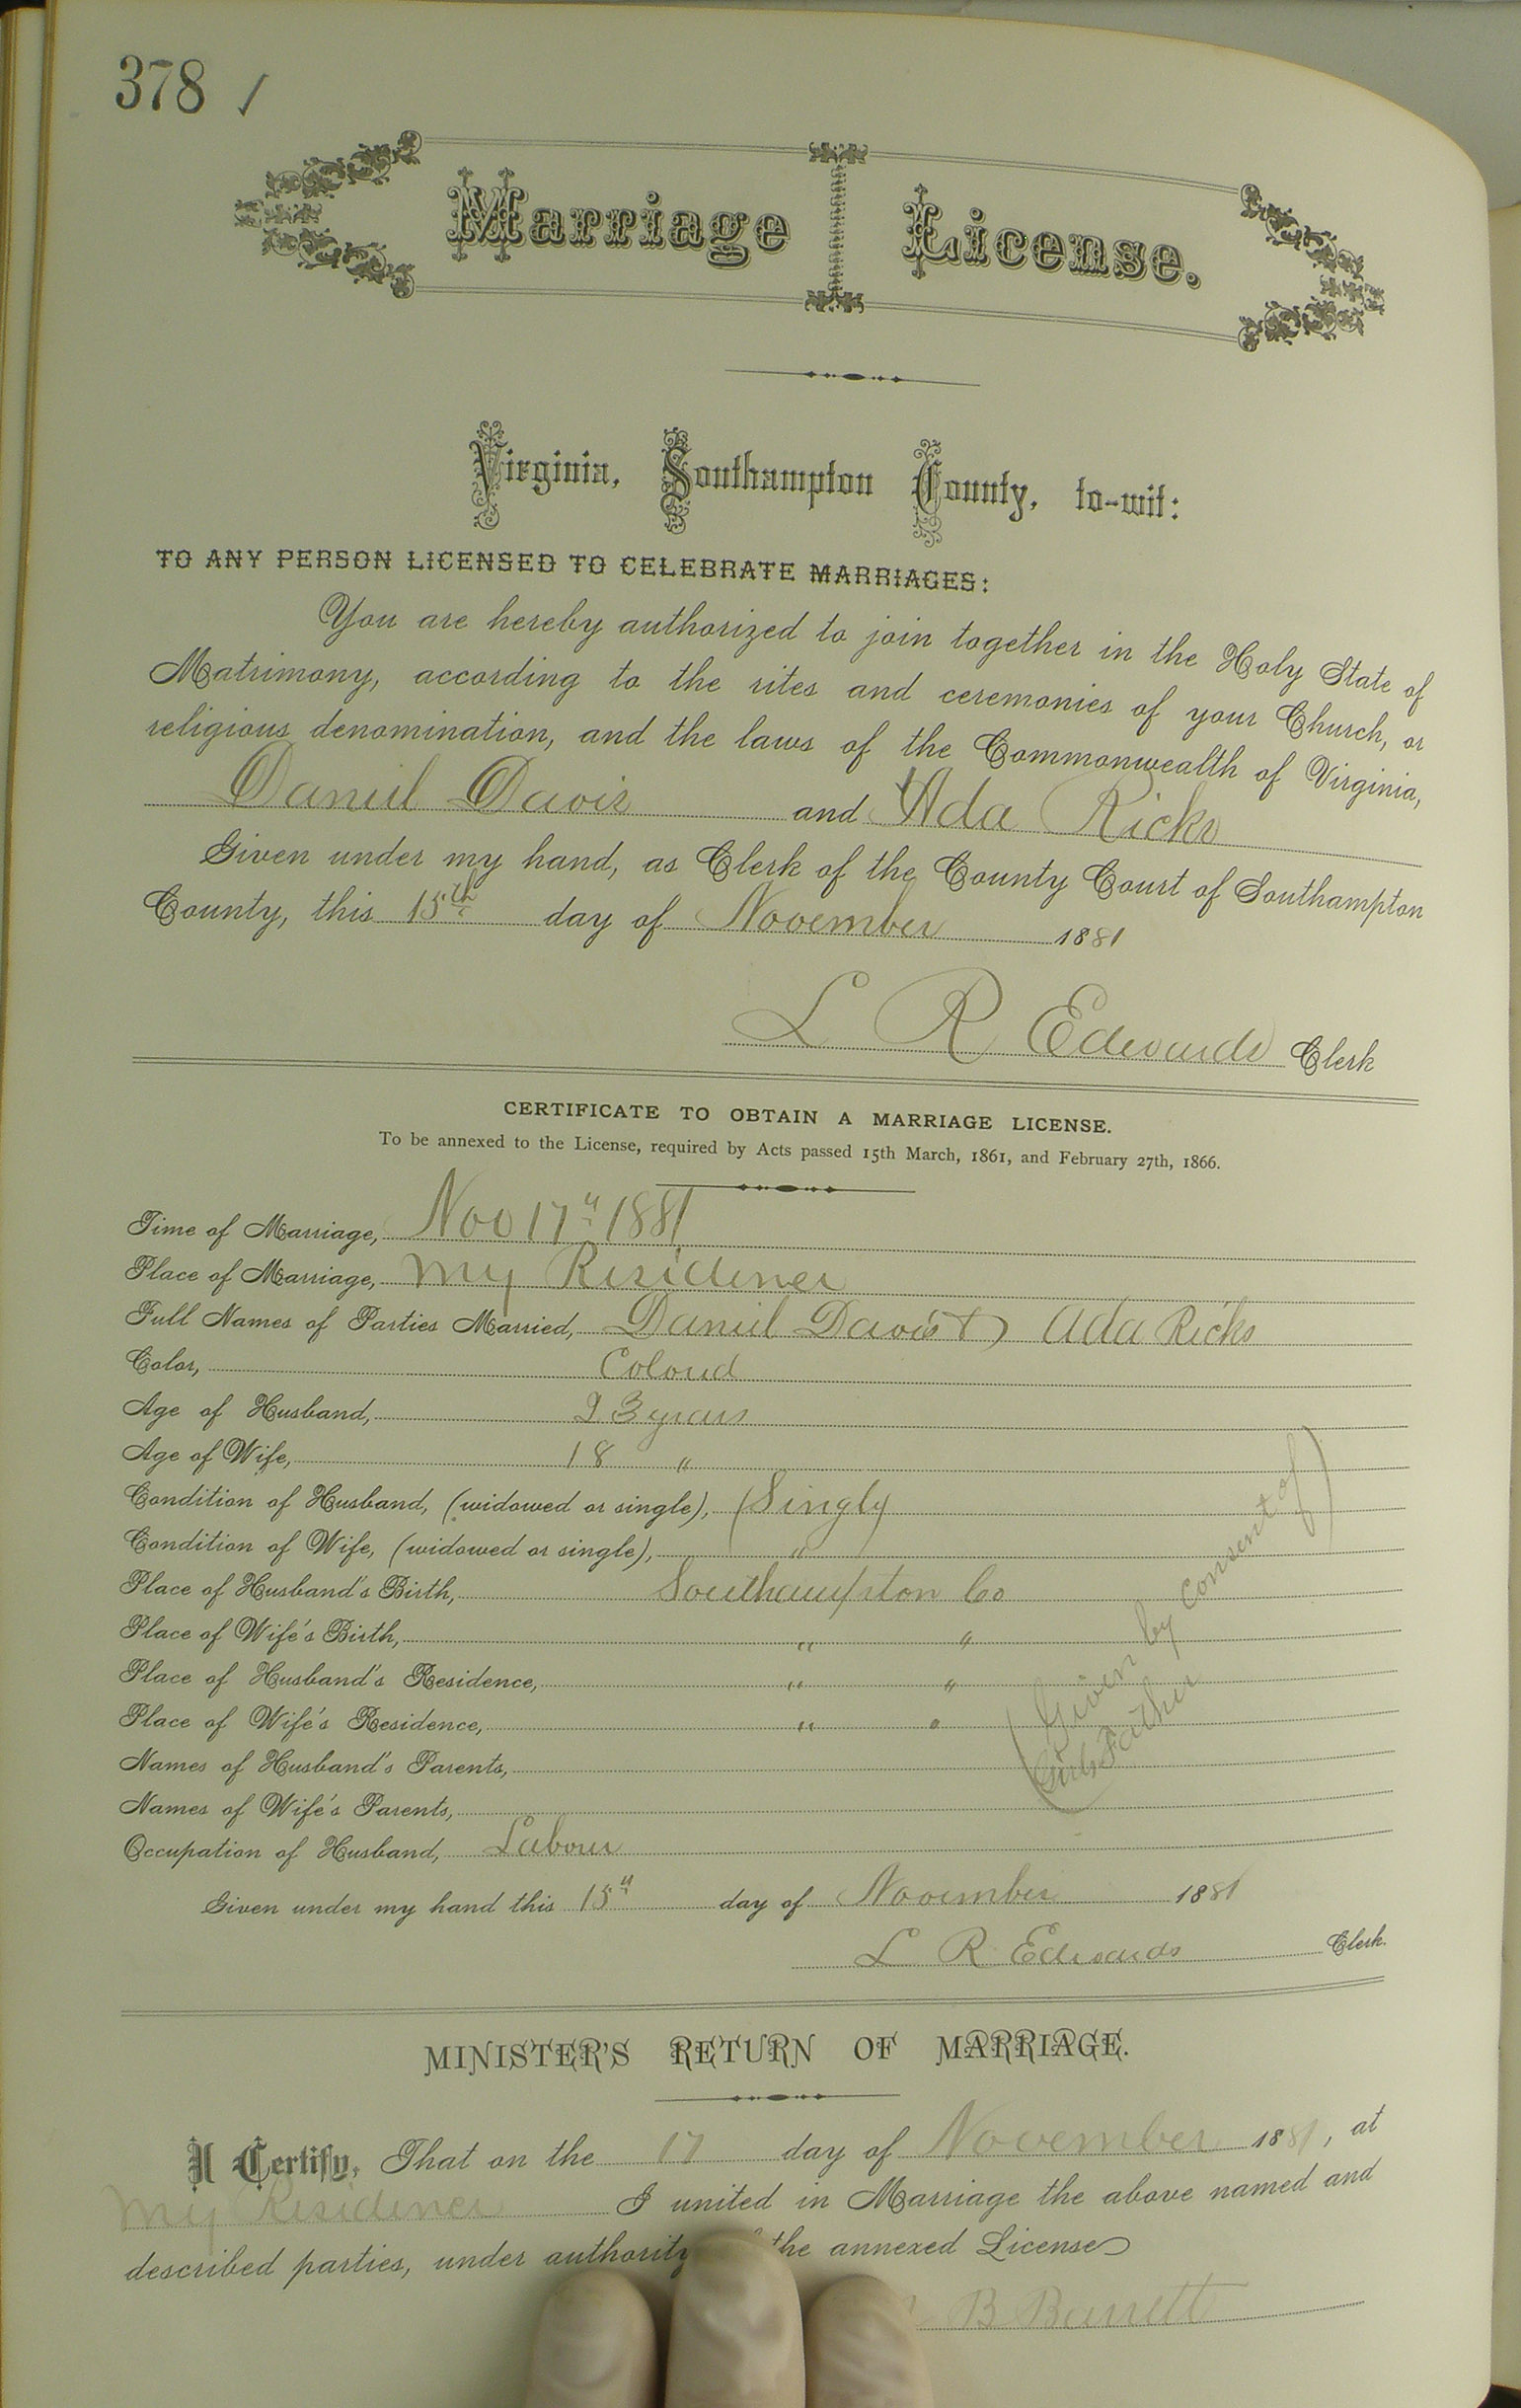 378 /
Marriage License.
Virginia, Southampton County, to-wit:
TO ANY PERSON LICENSED TO CELEBRATE MARRIAGES:
You are hereby authorized to join together in the Holy State of
Matrimony, according to the rites and ceremonies of your Church, or
religious denomination, and the laws of the Commonwealth of Virginia,
Daniel Davis and Ada Ricks
Given under my hand, as Clerk of the County Court of Southampton
County, this 15th day of November 1881
L R Edwards Clerk
CERTIFICATE TO OBTAIN A MARRIAGE LICENSE.
To be annexed to the License, required by Acts passed 15th March, 1861, and February 27th, 1866.
Time of Marriage, Nov 17" 1881
Place of Marriage, My Residence
Full Names of Parties Married, Daniel Davis & Ada Ricks
Color, Colored
Age of Husband, 23 years
Age of Wife, 18 "
Condition of Husband, (widowed or single), (Single)
Condition of Wife, (widowed or single), "
Place of Husband's Birth, Southampton Co
Place of Wife's Birth, " "
Place of Husband's Residence, " "
Place of Wife's Residence, " "
Names of Husband's Parents,
Names of Wife's Parents,
(Given by consent of)
Girls Father
Occupation of Husband, Labour
Given under my hand this 15" day of November 1881
L R Edwards Clerk.
MINISTER'S RETURN OF MARRIAGE.
I Certify, That on the 17 day of November 1881, at
My Residence I united in Marriage the above named and
described parties, under authority the annexed License
B Barrett